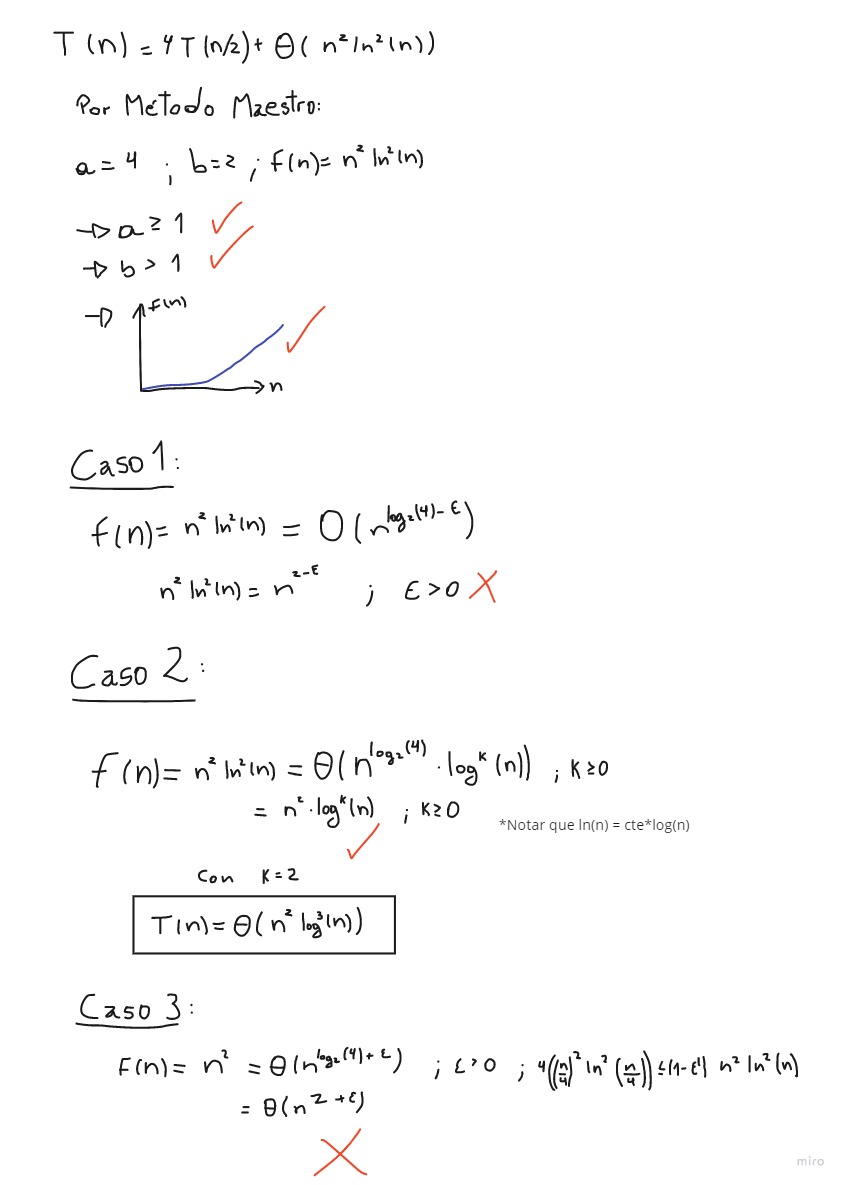 T(n) = 4T(n/2) + Θ(n² ln²(n))
Por Método Maestro:
a = 4 ; b = 2 ; f(n) = n² ln²(n)
→ a ≥ 1 ✓
→ b > 1 ✓
→ f(n) ✓
n
Caso 1:
f(n) = n² ln²(n) = O(n^(log₂(4) - ε))
n² ln²(n) = n^(2-ε) ; ε > 0 ✗
Caso 2:
f(n) = n² ln²(n) = Θ(n^(log₂(4)) · log^k(n)) ; k ≥ 0
= n² · log^k(n) ; k ≥ 0 ✓
*Notar que ln(n) = cte*log(n)
Con k = 2
T(n) = Θ(n² log³(n))
Caso 3:
F(n) = n² = Θ(n^(log₂(4) + ε)) ; ε > 0 ; 4((n/4)² ln²(n/4)) ≤ (1-ε') n² ln²(n)
= Θ(n^(2+ε))
✗
miro